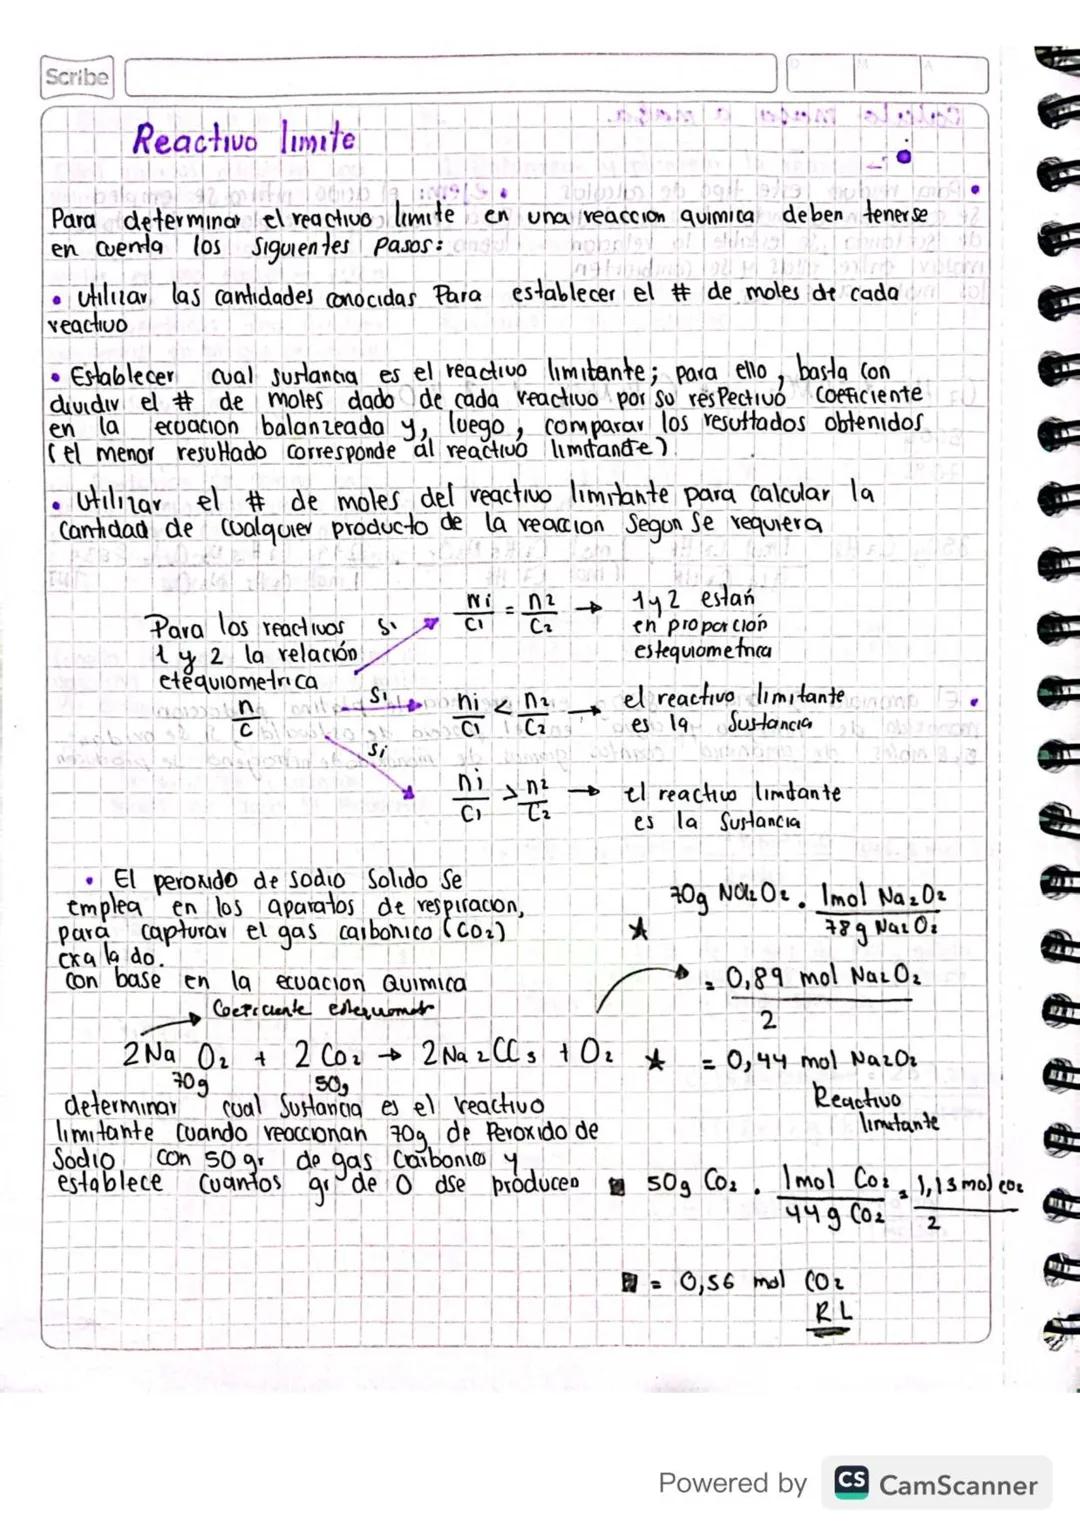 Scribe
Reactivo limite
Para determinar el reactivo limite en una reaccion quimica deben tenerse
en cuenta los siguientes Pasos:
• Utilizar las cantidades conocidas Para establecer el # de moles de cada
reactivo
• Establecer cual sustancia es el reactivo limitante; para ello, basta con
dividir el # de moles dado de cada reactivo por su resPectivo coeficiente
en la ecuacion balanzeada y, luego, comparar los resultados obtenidos
(el menor resultado corresponde al reactivo limitande)
• Utilizar el # de moles del reactivo limitante para calcular la
Cantidad de cualquier producto de la reaccion Segun se requiera
Para los reactivos
1 y 2 la relación
etequiometrica
n/c
Si n1/C1 = n2/C2 → 1 y 2 estan
en proporcion
estequiometrica
Si n1/C1 < n2/C2 → el reactivo limitante
es la Sustancia
Si n1/C1 > n2/C2 → el reactivo limitante
es la Sustancia
• El peroxido de sodio Solido Se
emplea en los aparatos de respiracion,
para capturar el gas carbonico (CO2)
exalado.
Con base en la ecuacion Quimica
Coeficiente estequiomet
2Na O2 + 2 CO2 → 2Na2CO3 + O2
70g 50g
determinar cual Sustancia es el reactivo
limitante cuando reaccionan 70g de Peroxido de
Sodio con 50 gr de gas Carbonico y
establece cuantos gr de O dse producen
70g Na2O2 . 1mol Na2O2 / 78g Na2O2
= 0,89 mol Na2O2 / 2
= 0,44 mol Na2O2
Reactivo
limitante
50g CO2 . 1mol CO2 / 44g CO2 = 1,13 mol CO2 / 2
= 0,56 mol CO2
RL
Powered by CS CamScanner